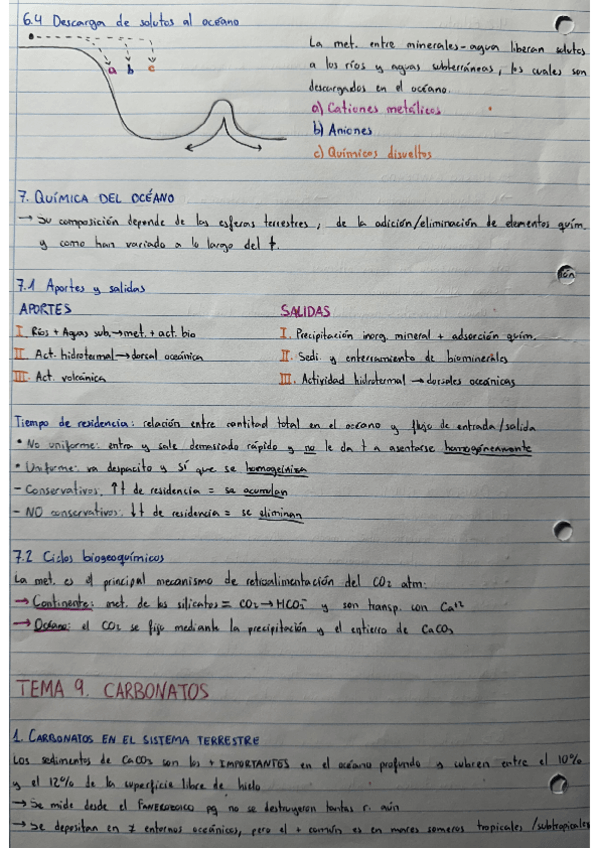 6.4 Descarga de solutos al océano
La met. entre minerales-agua liberan solutos
a los ríos y aguas subterráneas, los cuales son
descargados en el océano.
a b c
a) Cationes metálicos
b) Aniones
c) Químicos disueltos
7. QUÍMICA DEL OCÉANO
→ Su composición depende de las esferas terrestres, de la adición/eliminación de elementos quím.
y como han variado a lo largo del t.
7.1 Aportes y salidas
APORTES
I. Ríos + Aguas sub. → met. + act. bio
II. Act. hidrotermal → dorsal oceánica
III. Act. volcánica
SALIDAS
I. Precipitación inorg. mineral + adsorción quím.
II. Sedi. y enterramiento de biominerales
III. Actividad hidrotermal → dorsales oceánicas
Tiempo de residencia: relación entre cantidad total en el océano y flujo de entrada/salida
• No uniforme: entra y sale demasiado rápido y no le da t a asentarse homogéneamente
• Uniforme: va despacito y sí que se homogeiniza
- Conservativos: ↑t de residencia = se acumulan
- NO conservativos: ↓t de residencia = se eliminan
7.2 Ciclos biogeoquímicos
La met. es el principal mecanismo de retroalimentación del CO₂ atm:
→ Continente: met. de los silicatos = CO₂ → HCO₃⁻ y son transp. con Ca⁺²
→ Océano: el CO₂ se fija mediante la precipitación y el entierro de CaCO₃
TEMA 9. CARBONATOS
1. CARBONATOS EN EL SISTEMA TERRESTRE
Los sedimentos de CaCO₃ son los + IMPORTANTES en el océano profundo y cubren entre el 10%
y el 12% de la superficie libre de hielo
→ Se mide desde el FANEROZOICO pq no se destruyeron tantas r. aún
→ Se depositan en ≠ entornos oceánicos, pero el + común es en mares someros tropicales/subtropicales